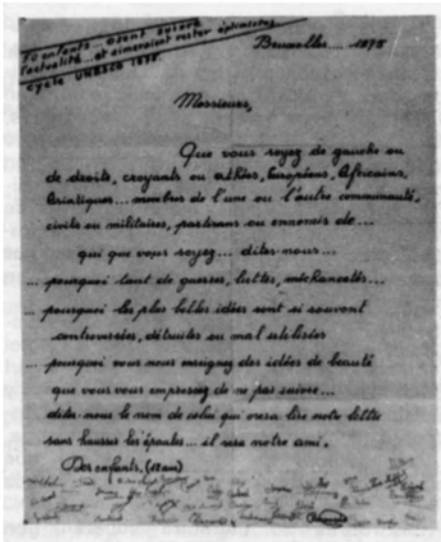 30 enfants... osent suivre
l'actualité... et aimeraient rester optimistes
cycle UNESCO 1975.
Bruxelles.... 1975
Messieurs,
Que vous soyez de gauche ou
de droite, croyants ou athées, Européens, Africains,
Asiatiques... membres de l'une ou l'autre communauté,
civils ou militaires, partisans ou ennemis de...
qui que vous soyez... dites-nous...
... pourquoi tant de guerres, luttes, méchancetés...
... pourquoi les plus belles idées sont si souvent
controversées, détruites ou mal utilisées
... pourquoi vous nous enseignez des idées de beauté
que vous vous empressez de ne pas suivre...
dites-nous le nom de celui qui osera lire notre lettre
sans hausser les épaules... il sera notre ami.
Des enfants, (12 ans)